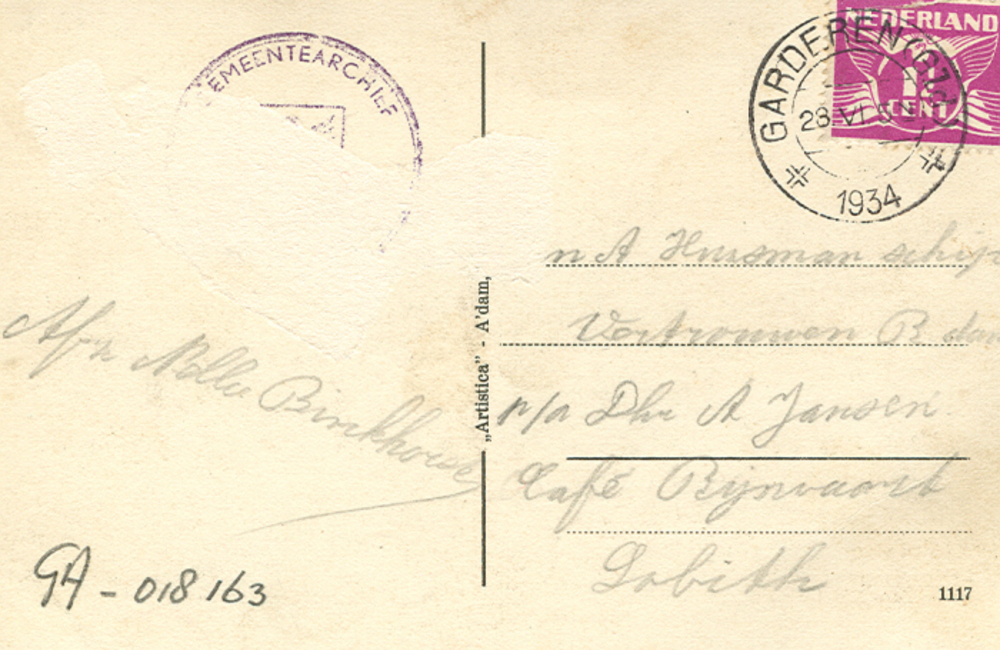 GEMEENTEARCHIEF
NEDERLAND
CENT
GARDEREN (GLD.)
28.VI
1934
A Huisman schip
Vertrouwen B
p/a Dhr A Jansen
Café Rijnvaart
Lobith
Afz
GA - 018163
„Artistica" - A'dam,
1117